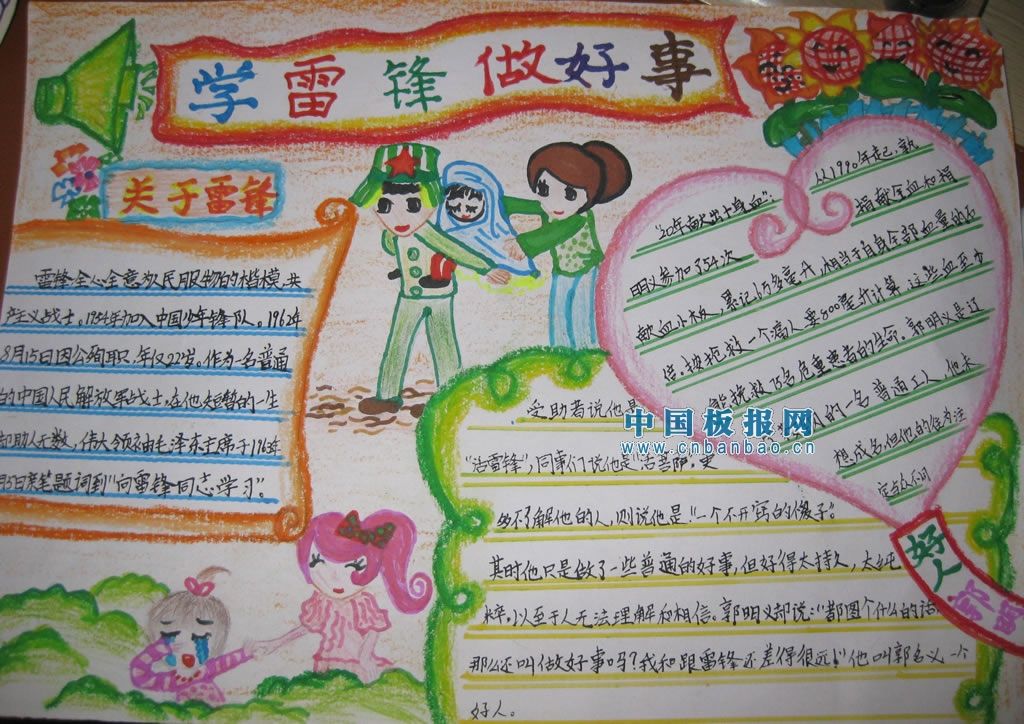 学雷锋做好事
关于雷锋
雷锋全心全意为人民服务的楷模,共
产主义战士。1954年加入中国少年锋队。1962年
8月15日因公殉职,年仅22岁。作为一名普通
的中国人民解放军战士,在他短暂的一生
却助人无数,伟大领袖毛泽东主席于1963年
月5日亲笔题词到“向雷锋同志学习”。
“20年献出十身血”:
从1990年起,郭
明义参加了54次
捐献全血和捐
献血小板,累记6万多毫升,相当于自身全部血量的
倍,按抢救一个病人要800毫升计算,这些血至少
能挽救75名危重患者的生命。郭明义是辽
的一名普通工人,他未
想成名,但他的
与众不同
好人
受助者说他是
“活雷锋”,同事们说他是“活菩萨”,更
多不了解他的人,则说他是:“一个不开窍的傻子”。
其时他只是做了一些普通的好事,但好得太持久,太纯
粹,以至于人无法理解和相信。郭明义却说:“都图个什么的话
那么还叫做好事吗?我和跟雷锋还差得很远!”他叫郭名义一个
好人。
中国板报网
www.cnbanbao.cn